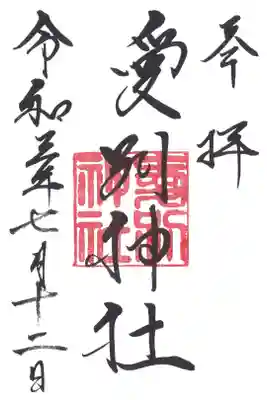 奉拝
愛別神社
愛別神社
令和年七月十二日